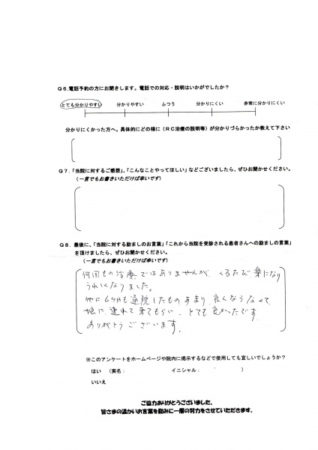 Q6.電話予約の方にお聞きします。電話での対応・説明はいかがでしたか？
とても分かりやすい 分かりやすい ふつう 分かりにくい 非常に分かりにくい
分かりにくかった方へ。具体的にどの様に（RC治療の説明等）が分かりづらかったか教えて下さい
Q7.「当院に対するご感想」、「こんなことやってほしい」などございましたら、ぜひお聞かせください。
（一言でもお書きいただけば幸いです）
Q8.最後に、「当院に対する励ましのお言葉」「これから当院を受診される患者さんへの励ましの言葉」
を頂けましたら、ぜひお聞かせください。
（一言でもお書きいただけば幸いです）
何回もの治療ではありませんが くるたび 楽になり
うれしくなりました。
他に 通院したもの あまり 良くならなくて
娘に 連れて来てもらい、とても 良かったです
ありがとうございます。
※このアンケートをホームページや院内に掲示するなどで使用しても宜しいでしょうか？
はい （実名： イニシャル： ）
いいえ
ご協力ありがとうございました。
皆さまの温かいお言葉を励みに一層の努力をさせていただきます。